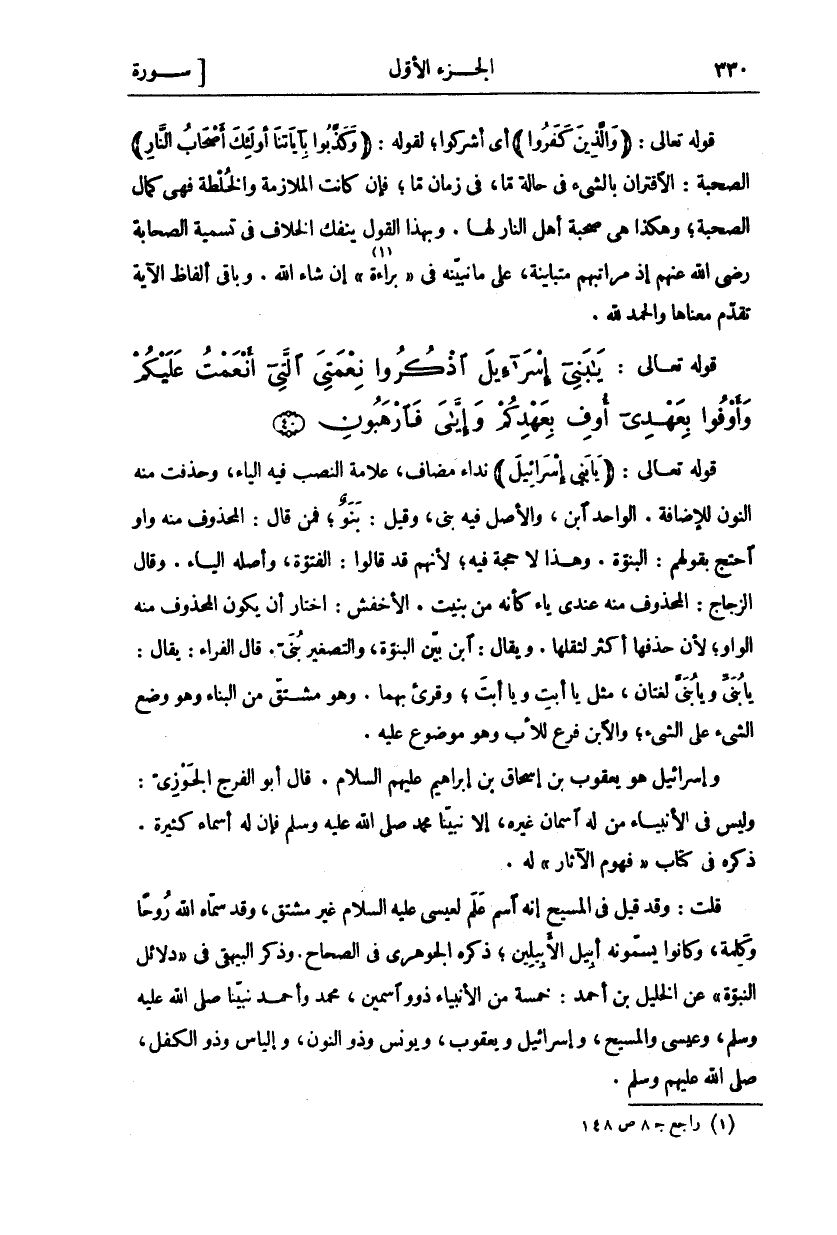 ٣٣٠ الجـــزء الأول [ ســـورة
قوله تعالى : ﴿ وَالَّذِينَ كَفَرُوا ﴾ أى أشركوا؛ لقوله : ﴿ وَكَذَّبُوا بِآيَاتِنَا أُولَئِكَ أَصْحَابُ النَّارِ ﴾
الصحبة : الأقتران بالشىء فى حالة مّا، فى زمان مّا ؛ فإن كانت الملازمة والخُلْطة فهى كمال
الصحبة؛ وهكذا هى صحبة أهل النار لهـا . وبهذا القول ينفك الخلاف فى تسمية الصحابة
رضى الله عنهم إذ مراتبهم متباينة، على مانبيّنه فى « براءة » (١) إن شاء الله . وباقى ألفاظ الآية
تقدّم معناها والحمد لله .
قوله تعـالى : يَـٰبَنِىٓ إِسْرَٰٓءِيلَ ٱذْكُرُوا نِعْمَتِىَ ٱلَّتِىٓ أَنْعَمْتُ عَلَيْكُمْ
وَأَوْفُوا بِعَهْـدِىٓ أُوفِ بِعَهْدِكُمْ وَإِيَّـٰىَ فَٱرْهَبُونِ ﴿٤٠﴾
قوله تعـالى : ﴿ يَابَنِي إِسْرَائِيلَ ﴾ نداء مضاف، علامة النصب فيه الياء، وحذفت منه
النون للإضافة . الواحد ٱبن ، والأصل فيه بنى، وقيل : بَنَوٌ ؛ فمن قال : المحذوف منه واو
ٱحتج بقولهم : البنوّة . وهـذا لا حجة فيه؛ لأنهم قد قالوا : الفتوّة، وأصله اليـاء . وقال
الزجاج : المحذوف منه عندى ياء كأنه من بنيت . الأخفش : اختار أن يكون المحذوف منه
الواو؛ لأن حذفها أكثر لثقلها . ويقال : ٱبن بيّن البنوّة، والتصغير بُنَىّ. قال الفراء : يقال :
يابُنَىِّ ويابُنَىَّ لغتان ، مثل يا أبتِ ويا أبتَ ؛ وقرئ بهما . وهو مشتقّ من البناء وهو وضع
الشىء على الشىء؛ والٱبن فرع للأب وهو موضوع عليه .
وإسرائيل هو يعقوب بن إسحاق بن إبراهيم عليهم السلام . قال أبو الفرج الجَوْزِىّ :
وليس فى الأنبيـاء من له ٱسمان غيره، إلا نبيّنا محمد صلى الله عليه وسلم فإن له أسماء كثيرة .
ذكره فى كتاب « فهوم الآثار » له .
قلت : وقد قيل فى المسيح إنه ٱسم عَلَم لعيسى عليه السلام غير مشتق، وقد سمّاه الله رُوحًا
وكَلِمة، وكانوا يسمّونه أبِيل الأَبِيلِين ؛ ذكره الجوهرى فى الصحاح. وذكر البيهقى فى «دلائل
النبوّة» عن الخليل بن أحمد : خمسة من الأنبياء ذوو ٱسمين ، محمد وأحمـد نبيّنا صلى الله عليه
وسلم، وعيسى والمسيح، وإسرائيل ويعقوب، ويونس وذو النون، وإلياس وذو الكفل،
صلى الله عليهم وسلم .
(١) راجع جـ ٨ ص ١٤٨